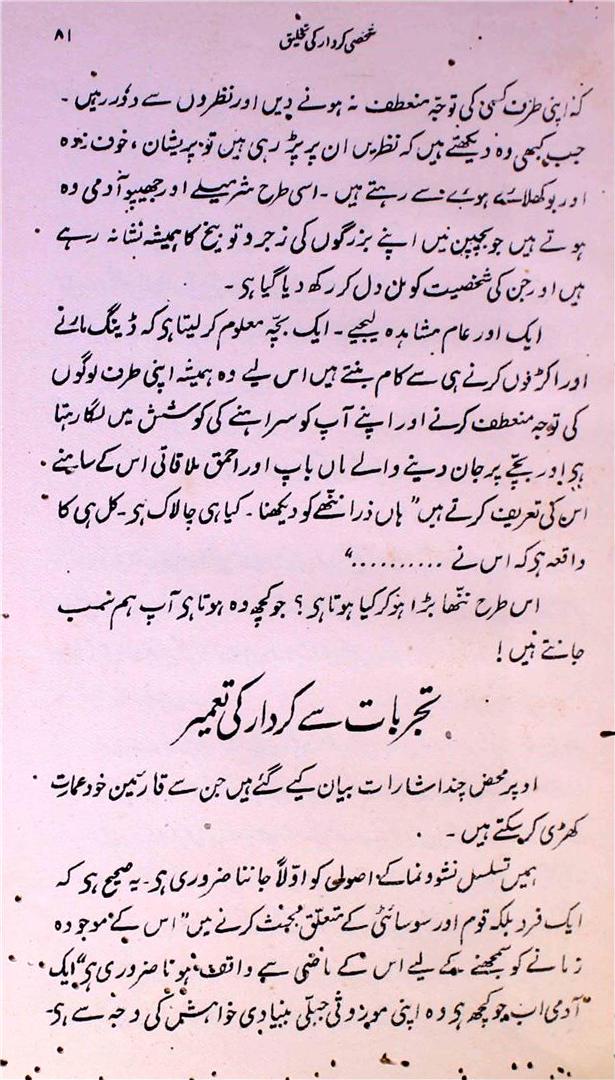 شخصی کردار کی تخلیق
۸۱
کہ اپنی طرف کسی کی توجہ منعطف نہ ہونے دیں اور نظروں سے دور رہیں۔
جب کبھی وہ دیکھتے ہیں کہ نظریں ان پر پڑ رہی ہیں تو پریشان، خوف زدہ
اور بوکھلائے ہوے سے رہتے ہیں۔ اسی طرح شرمیلے اور جھیپو آدمی وہ
ہوتے ہیں جو بچپن میں اپنے بزرگوں کی زجر و توبیخ کا ہمیشہ نشانہ رہے
ہیں اور جن کی شخصیت کو مل دل کر رکھ دیا گیا ہی۔
ایک اور عام مشاہدہ لیجیے۔ ایک بچّہ معلوم کر لیتا ہی کہ ڈینگ مارنے
اور اکڑفوں کرنے ہی سے کام بنتے ہیں اس لیے وہ ہمیشہ اپنی طرف لوگوں
کی توجہ منعطف کرنے اور اپنے آپ کو سراہنے کی کوشش میں لگا رہتا
ہی اور بچّے پر جان دینے والے ماں باپ اور احمق ملاقاتی اس کے سامنے
اس کی تعریف کرتے ہیں" ہاں ذرا ننھّے کو دیکھنا۔ کیا ہی چالاک ہی۔ کل ہی کا
واقعہ ہی کہ اس نے .........."
اس طرح ننھّا بڑا ہو کر کیا ہوتا ہی؟ جو کچھ وہ ہوتا ہی آپ ہم سب
جانتے ہیں!
تجربات سے کردار کی تعمیر
اوپر محض چند اشارات بیان کیے گئے ہیں جن سے قارئین خود عمارت
کھڑی کر سکتے ہیں۔
ہمیں تسلسل نشوونما کے اصولی کو اوّلاً جاننا ضروری ہی۔ یہ صحیح ہی کہ
ایک فرد بلکہ قوم اور سوسائٹی کے متعلق بحث کرنے میں" اس کے موجودہ
زمانے کو سمجھنے کے لیے اس کے ماضی سے واقف ہونا ضروری ہی" ایک
آدمی اب جو کچھ ہی وہ اپنی موروثی جبلّی بنیادی خواہش کی وجہ سے ہی۔